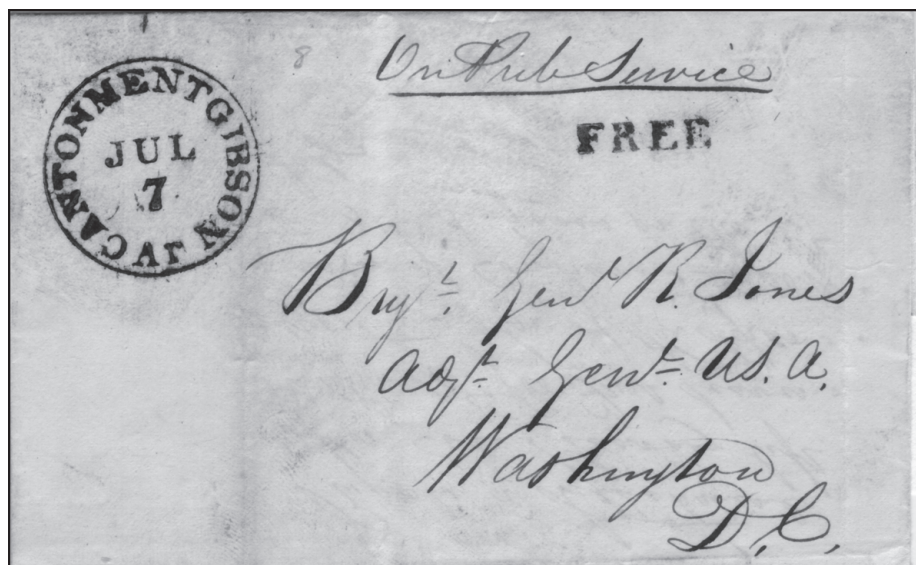 CANTONMENT GIBSON AT
JUL
7
8
On Pub Service
FREE
Brigt. Genl R. Jones
Adjt. Genl. U.S.A.
Washington
D.C.